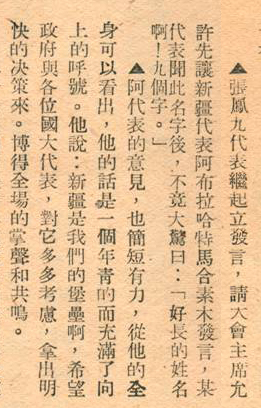 ▲張鳳九代表繼起立發言，請大會主席允
許先讓新疆代表阿布拉哈特馬合素木發言，某
代表聞此名字後，不竟大驚曰：「好長的姓名
啊！九個字。」
▲阿代表的意見，也簡短有力，從他的全
身可以看出，他的話是一個年青的而充滿了向
上的呼號。他說：新疆是我們的堡壘啊，希望
政府與各位國大代表，對它多多考慮，拿出明
快的决策來。博得全場的掌聲和共鳴。